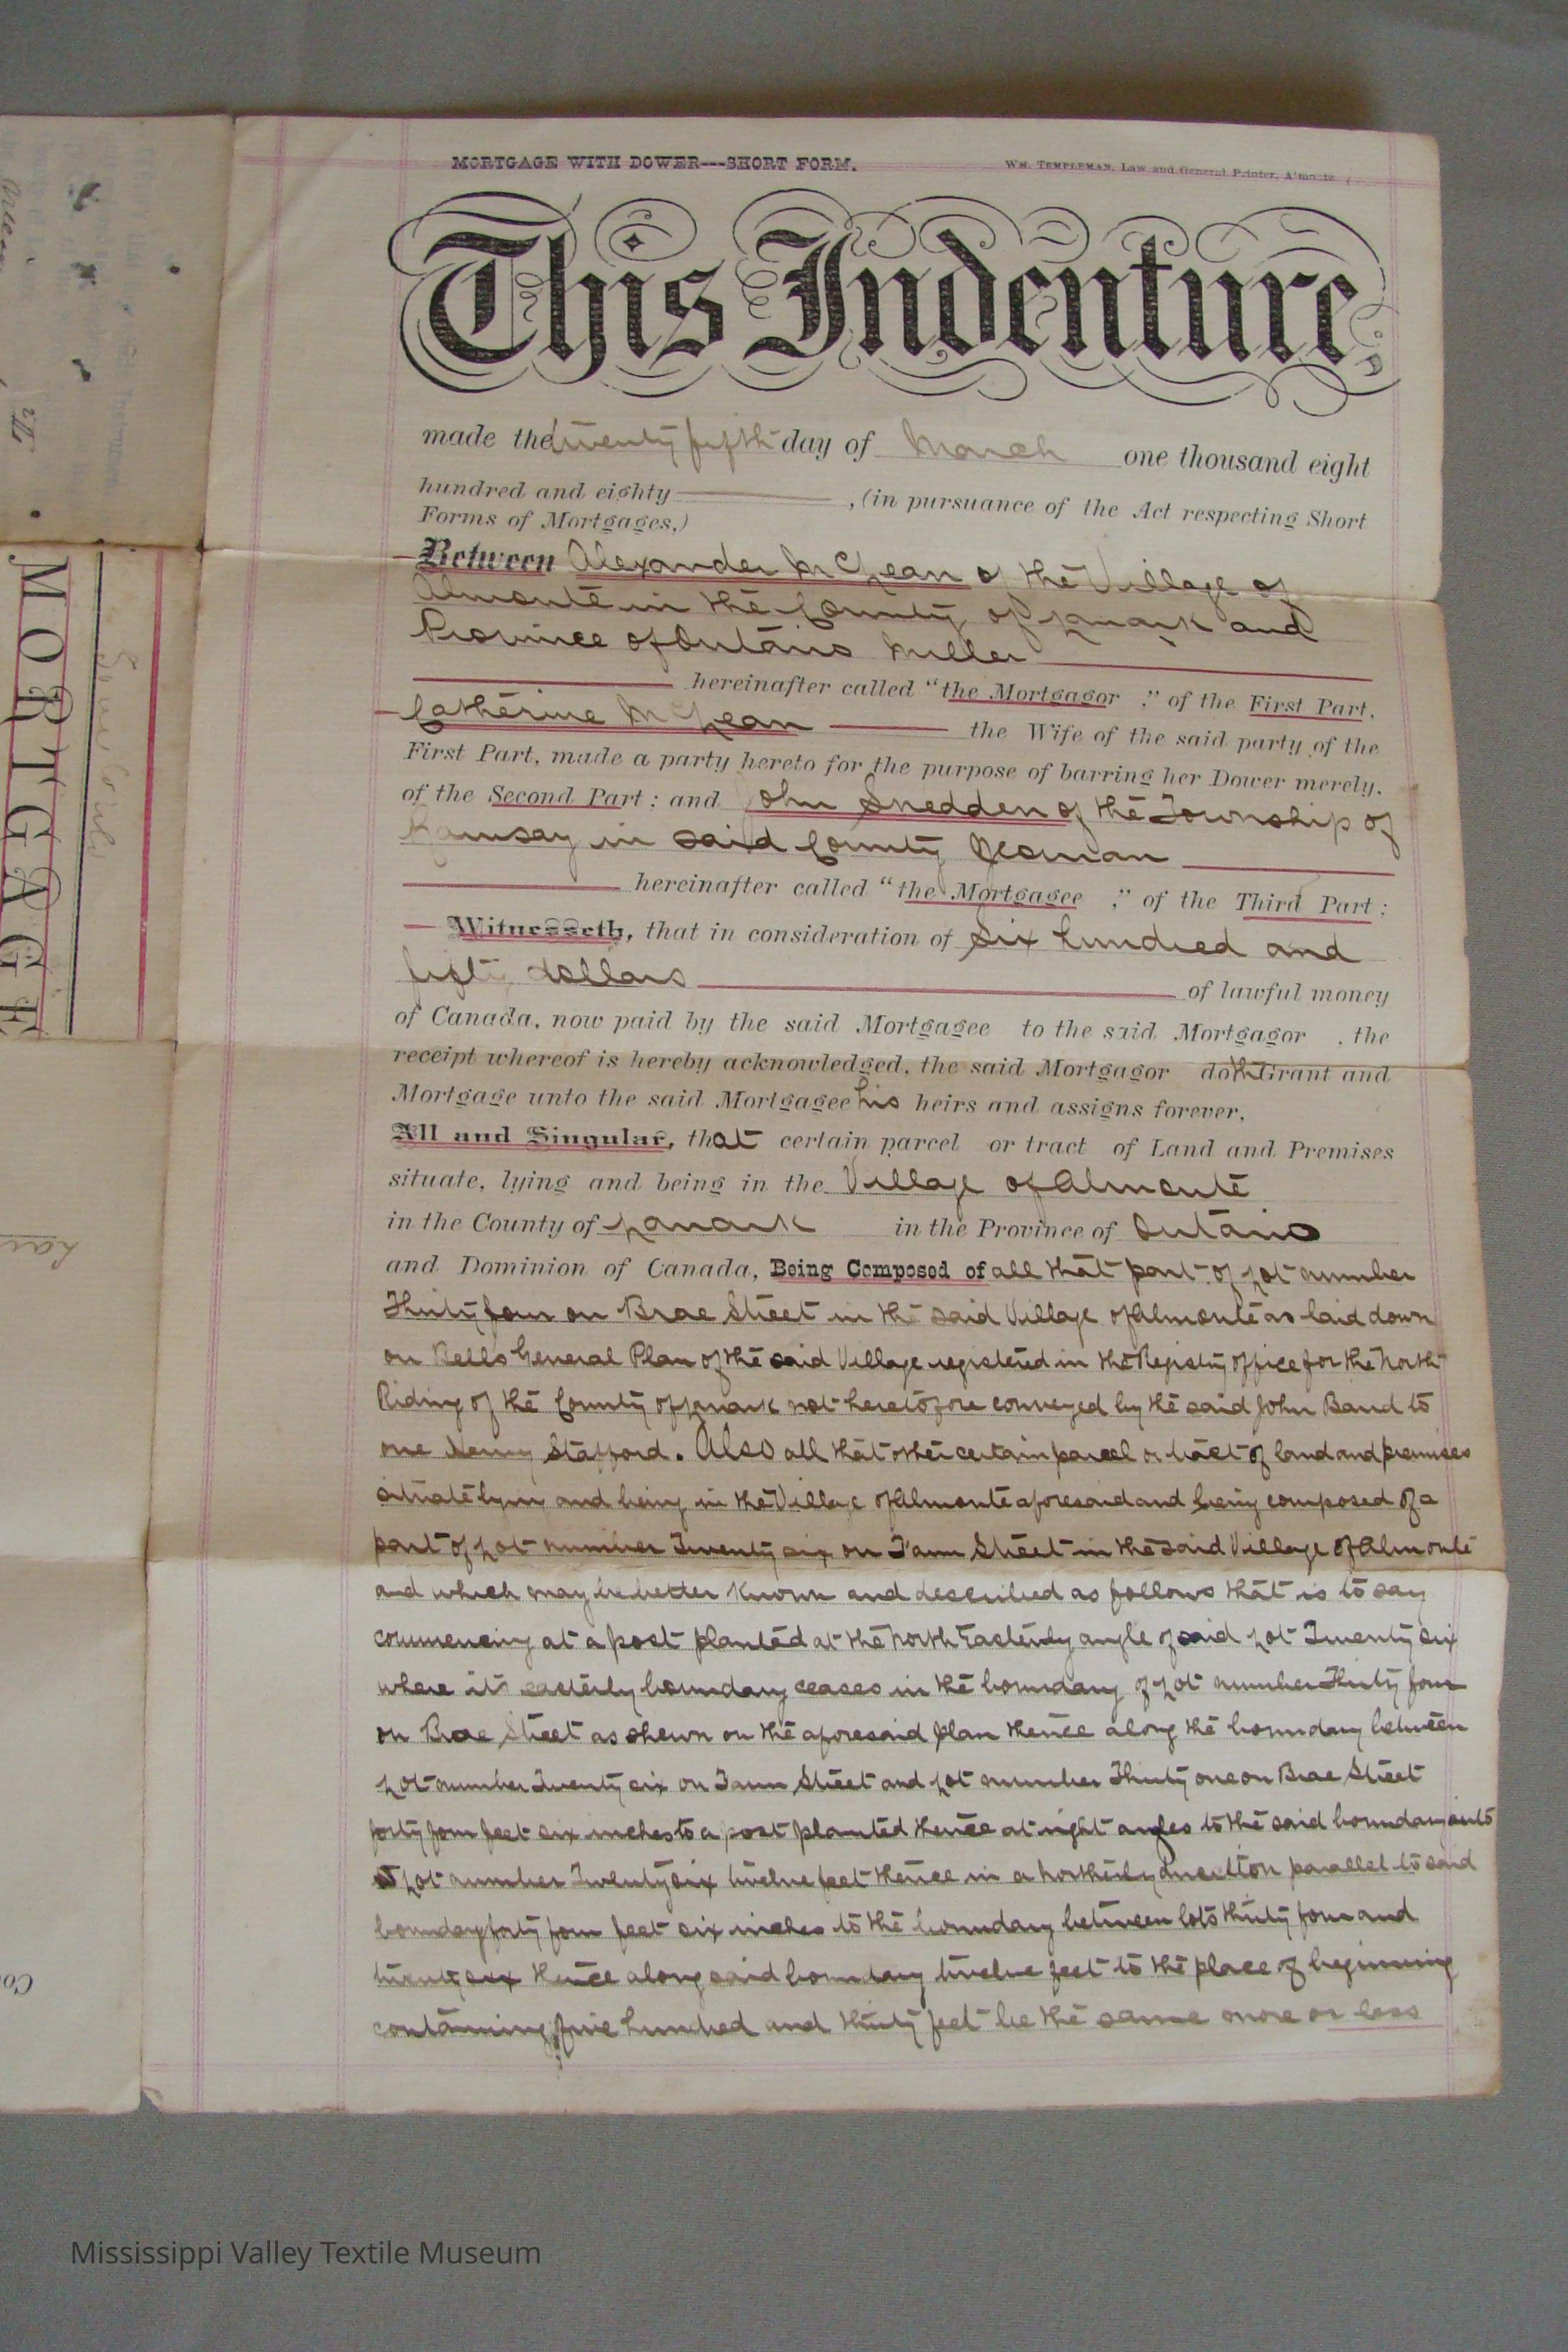 MORTGAGE WITH DOWER---SHORT FORM.
WM. TEMPLEMAN, Law and General Printer, Almonte
This Indenture,
made the twenty fifth day of March one thousand eight
hundred and eighty , (in pursuance of the Act respecting Short
Forms of Mortgages,)
Between Alexander McLean of the Village of
Almonte in the County of Lanark and
Province of Ontario Miller
hereinafter called "the Mortgagor ;" of the First Part,
Catherine McLean the Wife of the said party of the
First Part, made a party hereto for the purpose of barring her Dower merely,
of the Second Part; and John Snedden of the Township of
Ramsay in said County Yeoman
hereinafter called "the Mortgagee ;" of the Third Part;
Witnesseth, that in consideration of Six hundred and
fifty dollars of lawful money
of Canada, now paid by the said Mortgagee to the said Mortgagor , the
receipt whereof is hereby acknowledged, the said Mortgagor doth Grant and
Mortgage unto the said Mortgagee his heirs and assigns forever,
All and Singular, that certain parcel or tract of Land and Premises
situate, lying and being in the Village of Almonte
in the County of Lanark in the Province of Ontario
and Dominion of Canada, Being Composed of all that part of Lot number
Thirty four on Brae Street in the said Village of Almonte as laid down
on Bells General Plan of the said Village registered in the Registry office for the North
Riding of the County of Lanark not heretofore conveyed by the said John Baird to
one Henry Stafford. Also all that other certain parcel or tract of land and premises
situate lying and being in the Village of Almonte aforesaid and being composed of a
part of Lot number Twenty six on Tann Street in the said Village of Almonte
and which may be better known and described as follows that is to say
commencing at a post planted at the North Easterly angle of said Lot Twenty six
where its easterly boundary ceases in the boundary of Lot number Thirty four
on Brae Street as shewn on the aforesaid plan thence along the boundary between
Lot number Twenty six on Tann Street and Lot number Thirty one on Brae Street
forty four feet six inches to a post planted thence at right angles to the said boundary into
Lot number Twenty six twelve feet thence in a northerly direction parallel to said
boundary forty four feet six inches to the boundary between lots thirty four and
twenty six thence along said boundary twelve feet to the place of beginning
containing five hundred and thirty feet be the same more or less
MORTGAGE
Mississippi Valley Textile Museum